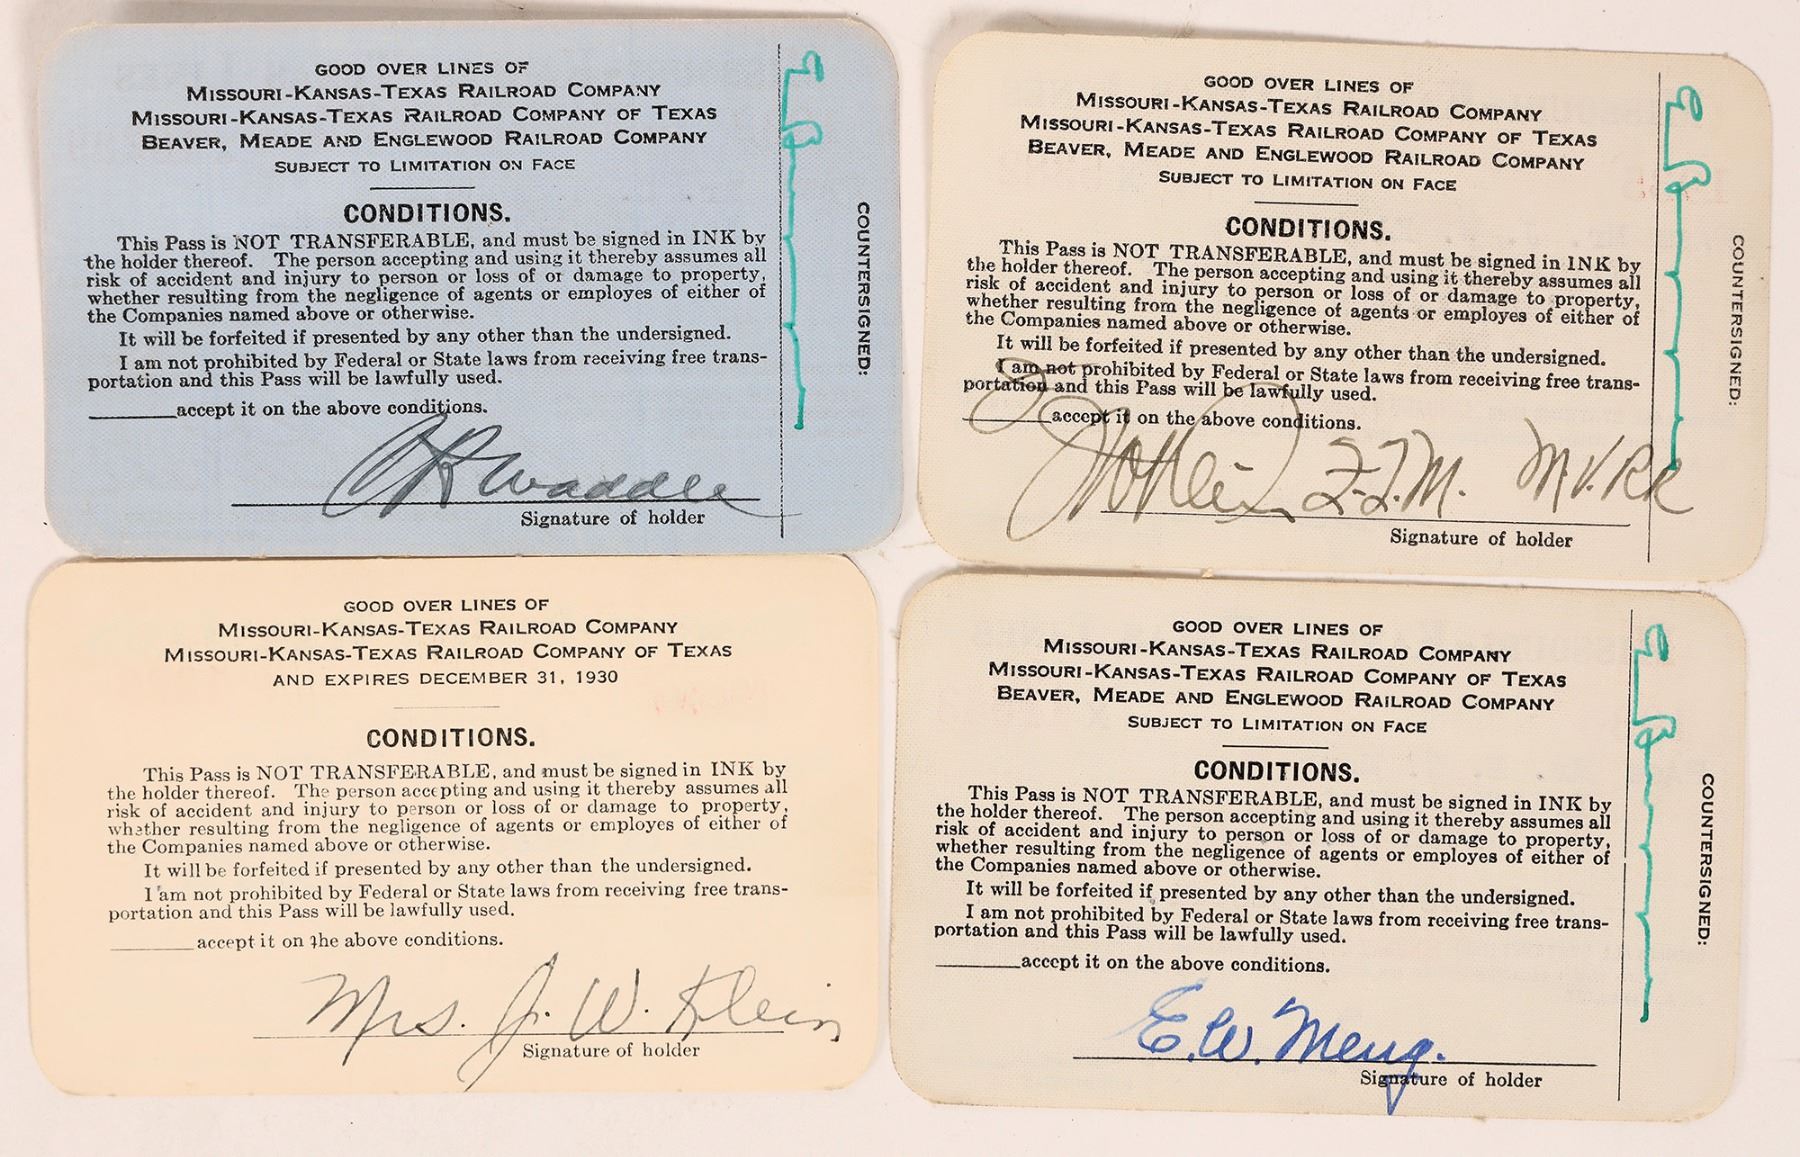 GOOD OVER LINES OF
MISSOURI-KANSAS-TEXAS RAILROAD COMPANY
MISSOURI-KANSAS-TEXAS RAILROAD COMPANY OF TEXAS
BEAVER, MEADE AND ENGLEWOOD RAILROAD COMPANY
SUBJECT TO LIMITATION ON FACE
CONDITIONS.
This Pass is NOT TRANSFERABLE, and must be signed in INK by
the holder thereof. The person accepting and using it thereby assumes all
risk of accident and injury to person or loss of or damage to property,
whether resulting from the negligence of agents or employes of either of
the Companies named above or otherwise.
It will be forfeited if presented by any other than the undersigned.
I am not prohibited by Federal or State laws from receiving free trans-
portation and this Pass will be lawfully used.
accept it on the above conditions.
Waddle
Signature of holder
COUNTERSIGNED:
GOOD OVER LINES OF
MISSOURI-KANSAS-TEXAS RAILROAD COMPANY
MISSOURI-KANSAS-TEXAS RAILROAD COMPANY OF TEXAS
BEAVER, MEADE AND ENGLEWOOD RAILROAD COMPANY
SUBJECT TO LIMITATION ON FACE
CONDITIONS.
This Pass is NOT TRANSFERABLE, and must be signed in INK by
the holder thereof. The person accepting and using it thereby assumes all
risk of accident and injury to person or loss of or damage to property,
whether resulting from the negligence of agents or employes of either of
the Companies named above or otherwise.
It will be forfeited if presented by any other than the undersigned.
I am not prohibited by Federal or State laws from receiving free trans-
portation and this Pass will be lawfully used.
accept it on the above conditions.
M.V.RR
Signature of holder
COUNTERSIGNED:
GOOD OVER LINES OF
MISSOURI-KANSAS-TEXAS RAILROAD COMPANY
MISSOURI-KANSAS-TEXAS RAILROAD COMPANY OF TEXAS
AND EXPIRES DECEMBER 31, 1930
CONDITIONS.
This Pass is NOT TRANSFERABLE, and must be signed in INK by
the holder thereof. The person accepting and using it thereby assumes all
risk of accident and injury to person or loss of or damage to property,
whether resulting from the negligence of agents or employes of either of
the Companies named above or otherwise.
It will be forfeited if presented by any other than the undersigned.
I am not prohibited by Federal or State laws from receiving free trans-
portation and this Pass will be lawfully used.
accept it on the above conditions.
Mrs. J. W. Klein
Signature of holder
GOOD OVER LINES OF
MISSOURI-KANSAS-TEXAS RAILROAD COMPANY
MISSOURI-KANSAS-TEXAS RAILROAD COMPANY OF TEXAS
BEAVER, MEADE AND ENGLEWOOD RAILROAD COMPANY
SUBJECT TO LIMITATION ON FACE
CONDITIONS.
This Pass is NOT TRANSFERABLE, and must be signed in INK by
the holder thereof. The person accepting and using it thereby assumes all
risk of accident and injury to person or loss of or damage to property,
whether resulting from the negligence of agents or employes of either of
the Companies named above or otherwise.
It will be forfeited if presented by any other than the undersigned.
I am not prohibited by Federal or State laws from receiving free trans-
portation and this Pass will be lawfully used.
accept it on the above conditions.
E.W. Meng.
Signature of holder
COUNTERSIGNED: